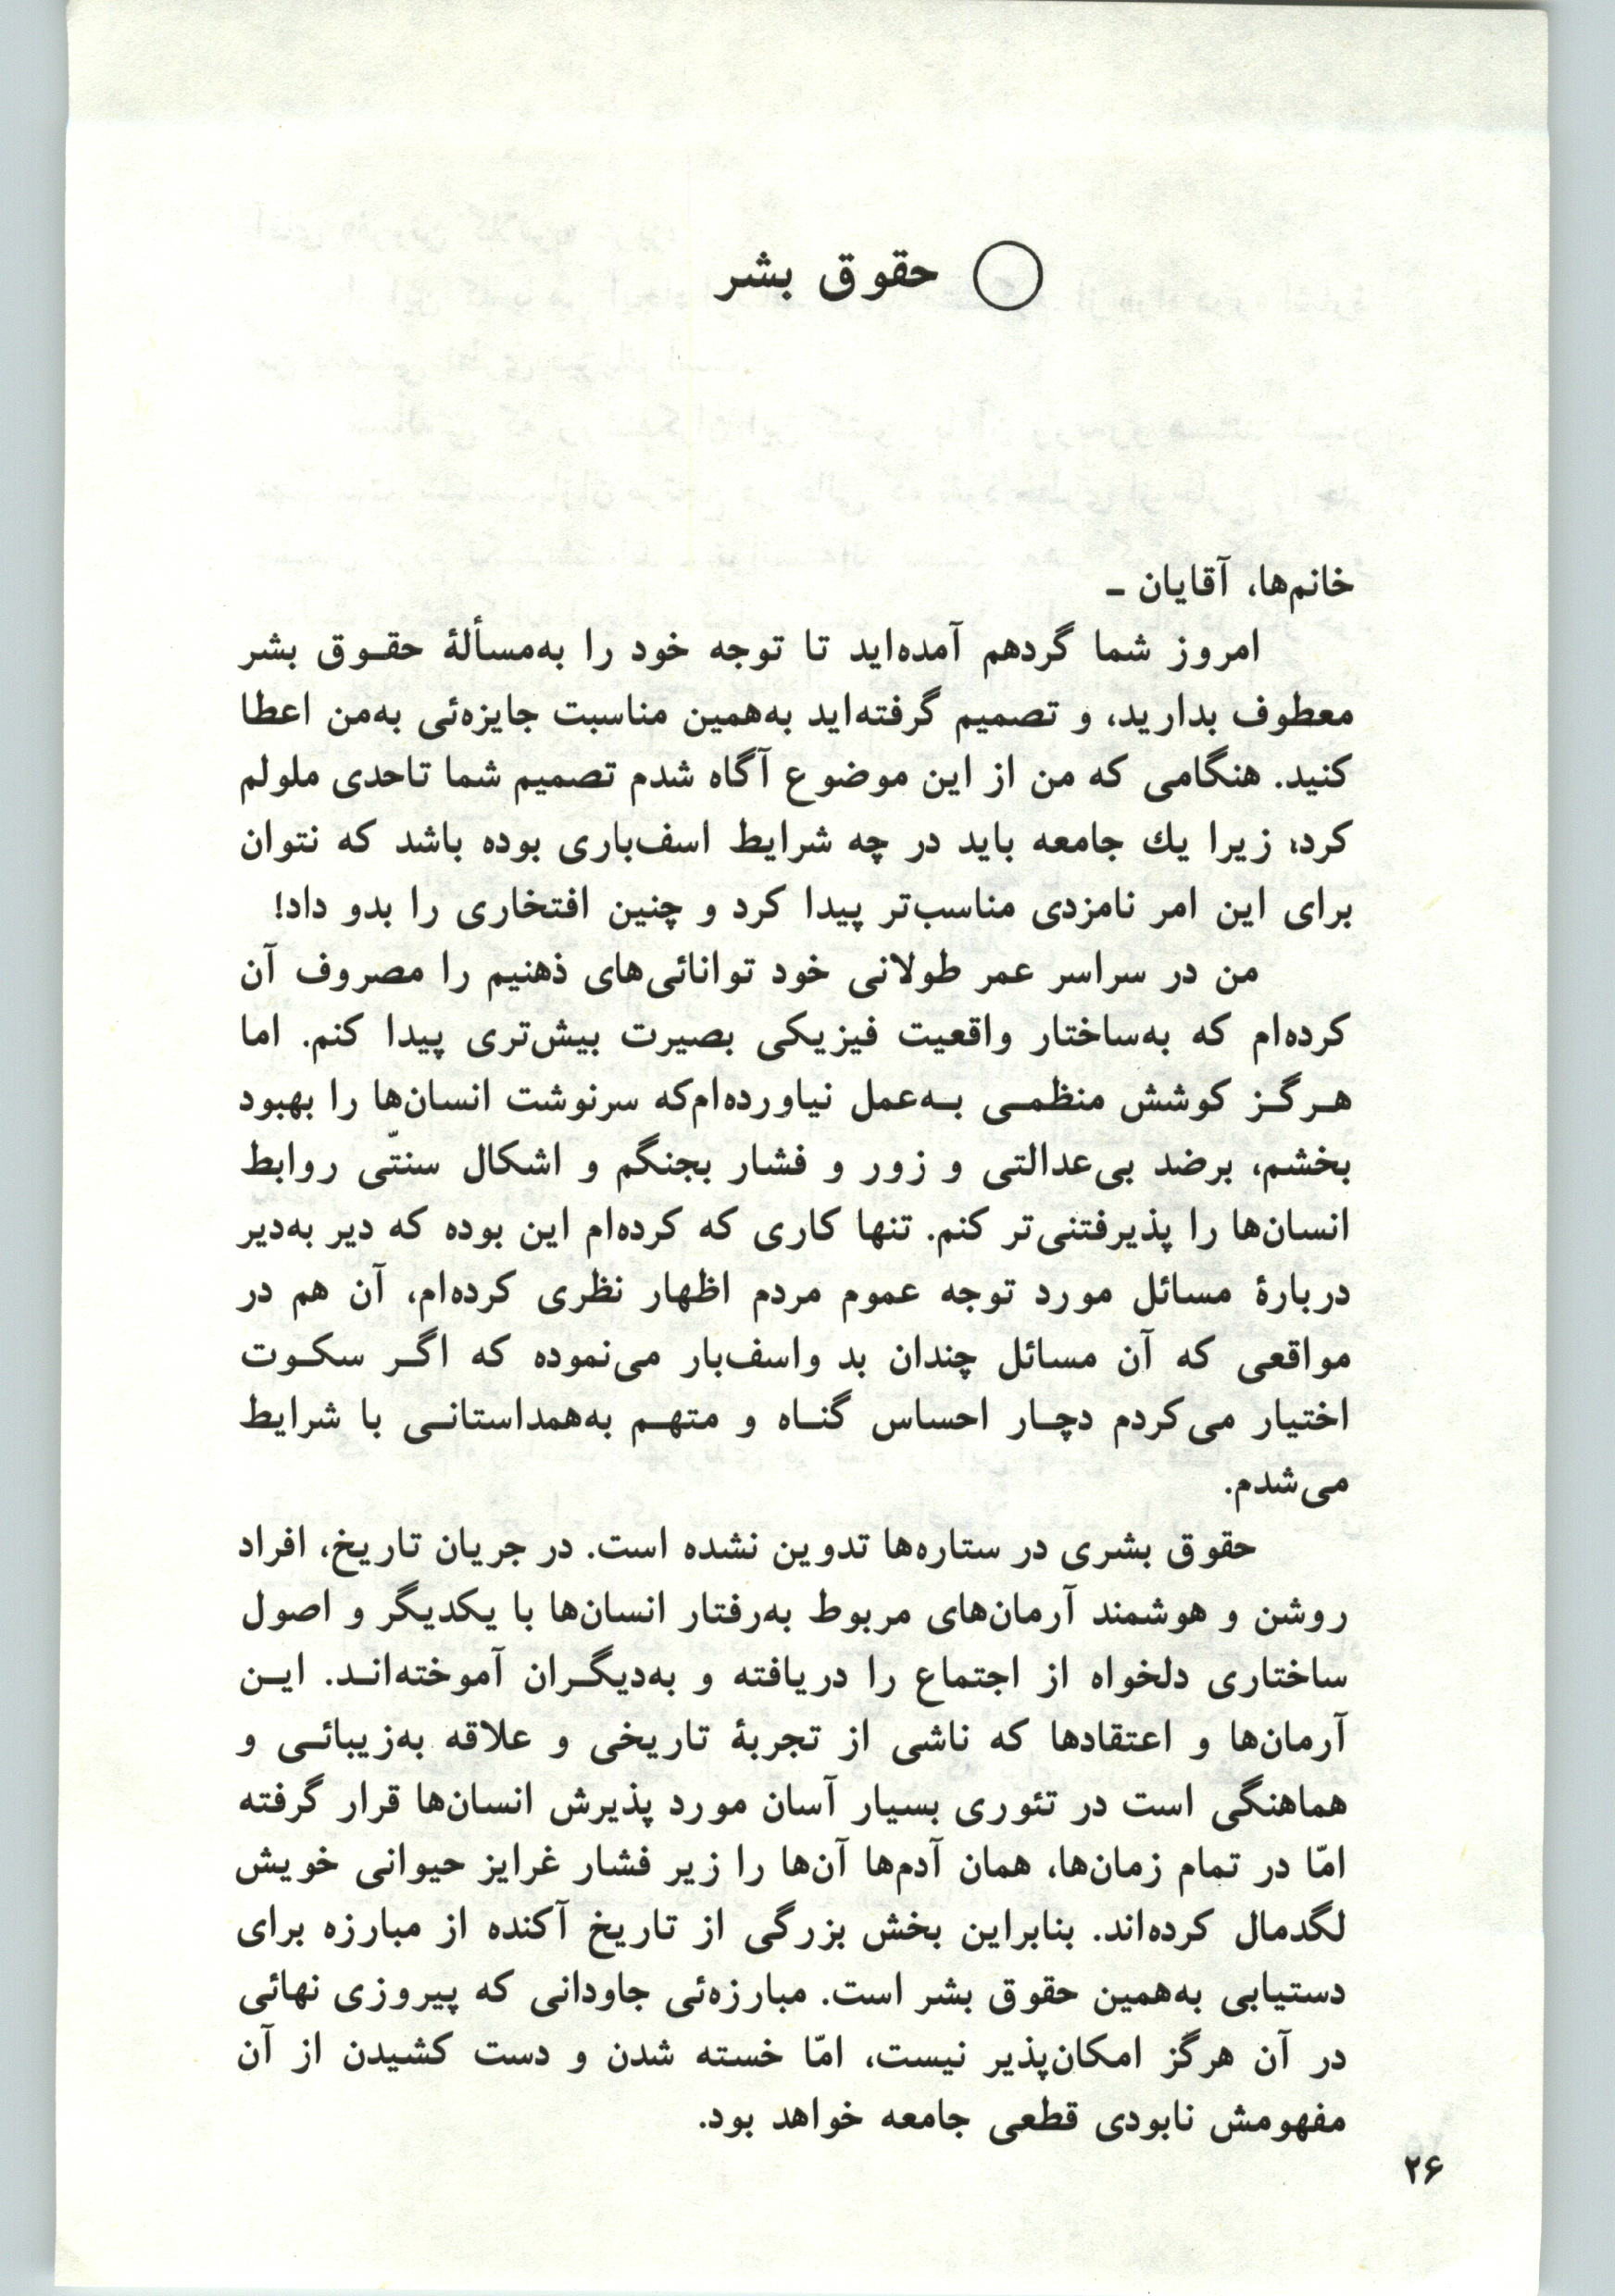 حقوق بشر
خانم‌ها، آقایان ـ
امروز شما گردهم آمده‌اید تا توجه خود را به‌مسألهٔ حقـوق بشر
معطوف بدارید، و تصمیم گرفته‌اید به‌همین مناسبت جایزه‌ئی به‌من اعطا
کنید. هنگامی که من از این موضوع آگاه شدم تصمیم شما تاحدی ملولم
کرد، زیرا یك جامعه باید در چه شرایط اسف‌باری بوده باشد که نتوان
برای این امر نامزدی مناسب‌تر پیدا کرد و چنین افتخاری را بدو داد!
من در سراسر عمر طولانی خود توانائی‌های ذهنیم را مصروف آن
کرده‌ام که به‌ساختار واقعیت فیزیکی بصیرت بیش‌تری پیدا کنم. اما
هـرگـز کوشش منظمـی بـه‌عمل نیاورده‌ام‌که سرنوشت انسان‌ها را بهبود
بخشم، برضد بی‌عدالتی و زور و فشار بجنگم و اشکال سنتّی روابط
انسان‌ها را پذیرفتنی‌تر کنم. تنها کاری که کرده‌ام این بوده که دیر به‌دیر
دربارهٔ مسائل مورد توجه عموم مردم اظهار نظری کرده‌ام، آن هم در
مواقعی که آن مسائل چندان بد واسف‌بار می‌نموده که اگـر سکـوت
اختیار می‌کردم دچـار احساس گنـاه و متهـم به‌همداستانـی با شرایط
می‌شدم.
حقوق بشری در ستاره‌ها تدوین نشده است. در جریان تاریخ، افراد
روشن و هوشمند آرمان‌های مربوط به‌رفتار انسان‌ها با یکدیگر و اصول
ساختاری دلخواه از اجتماع را دریافته و به‌دیگـران آموخته‌انـد. ایـن
آرمان‌ها و اعتقادها که ناشی از تجربهٔ تاریخی و علاقه به‌زیبائـی و
هماهنگی است در تئوری بسیار آسان مورد پذیرش انسان‌ها قرار گرفته
امّا در تمام زمان‌ها، همان آدم‌ها آن‌ها را زیر فشار غرایز حیوانی خویش
لگدمال کرده‌اند. بنابراین بخش بزرگی از تاریخ آکنده از مبارزه برای
دستیابی به‌همین حقوق بشر است. مبارزه‌ئی جاودانی که پیروزی نهائی
در آن هرگز امکان‌پذیر نیست، امّا خسته شدن و دست کشیدن از آن
مفهومش نابودی قطعی جامعه خواهد بود.
۲۶